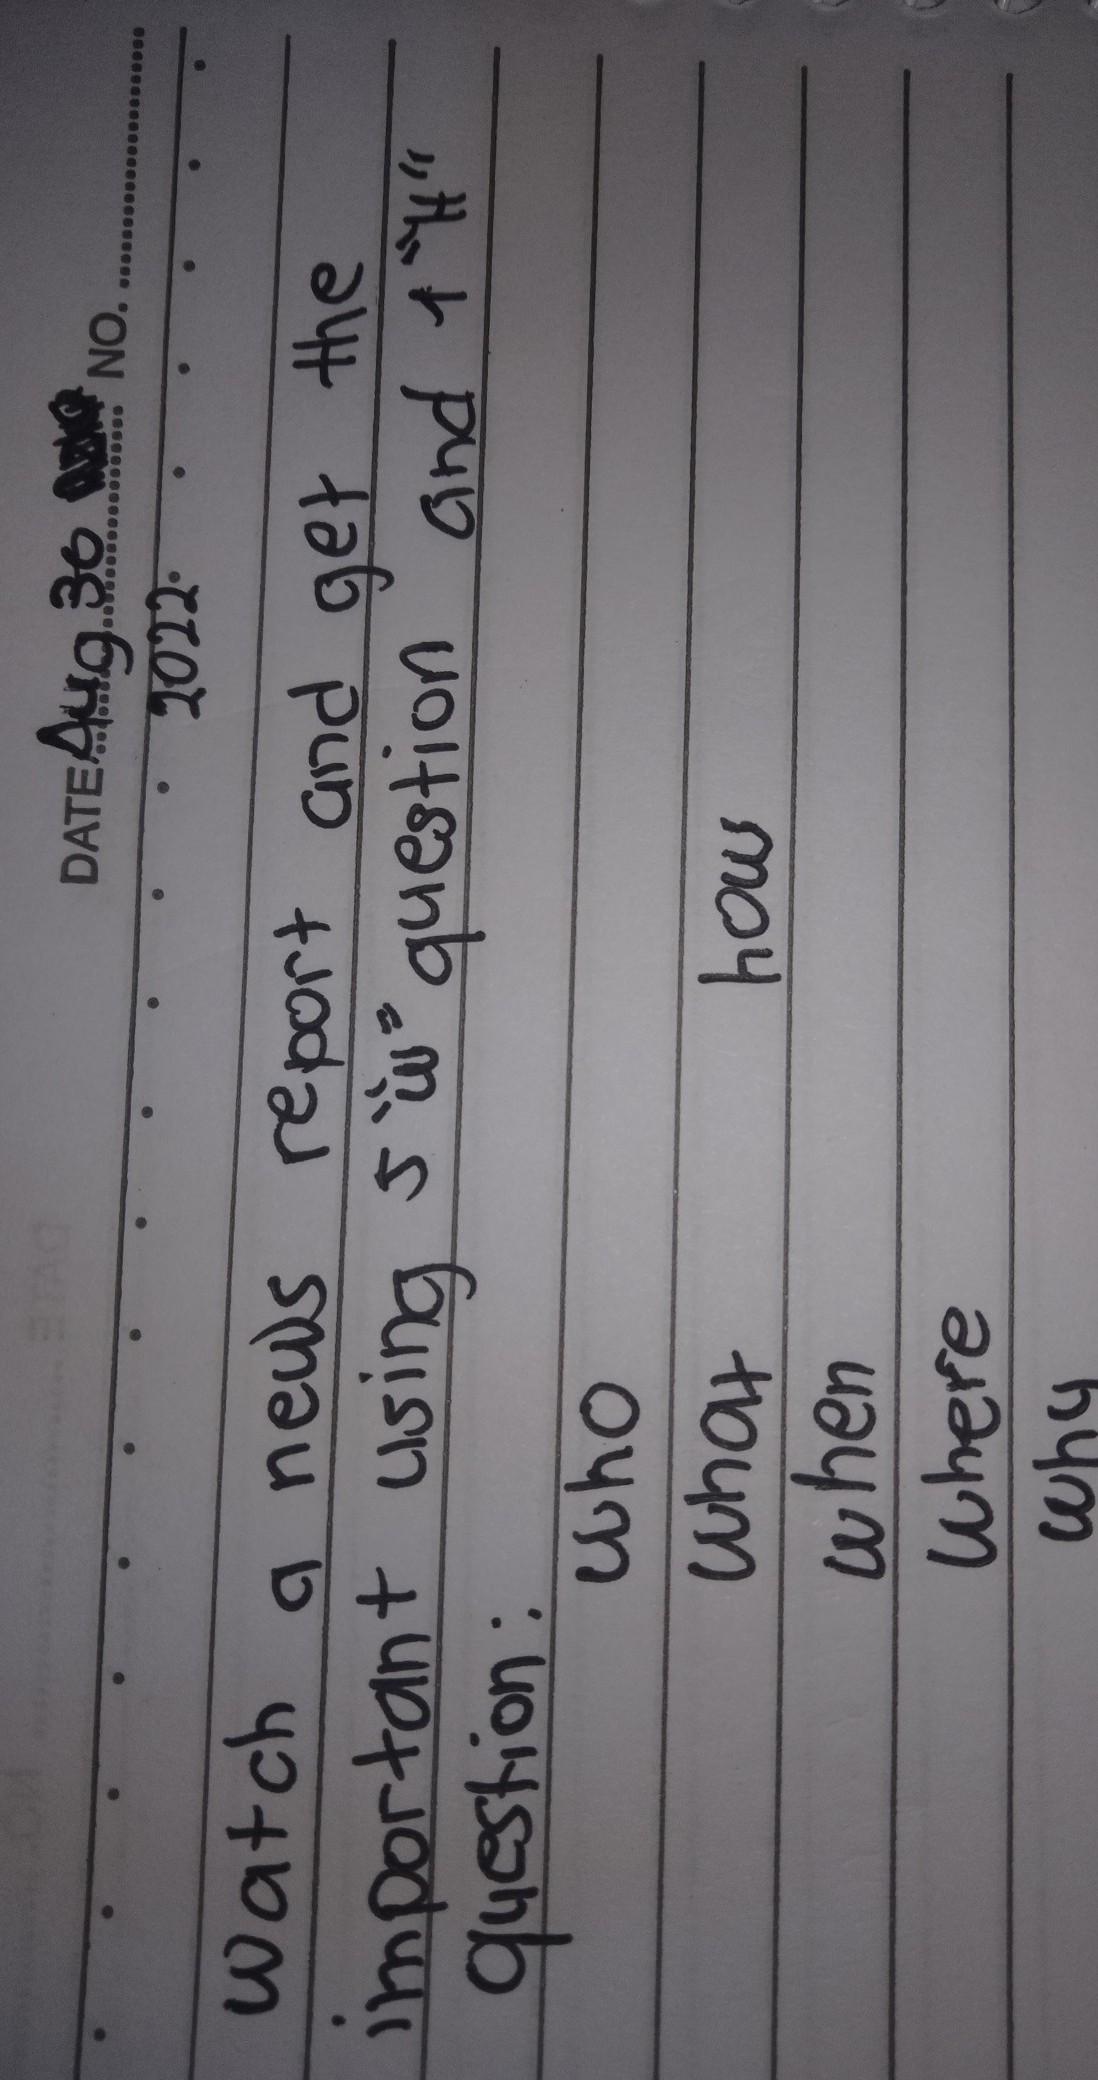 DATE Aug 30 NO.
2022
watch a news report and get the
important using 5 "w" question and 1 "H"
question:
who
what how
when
where
why